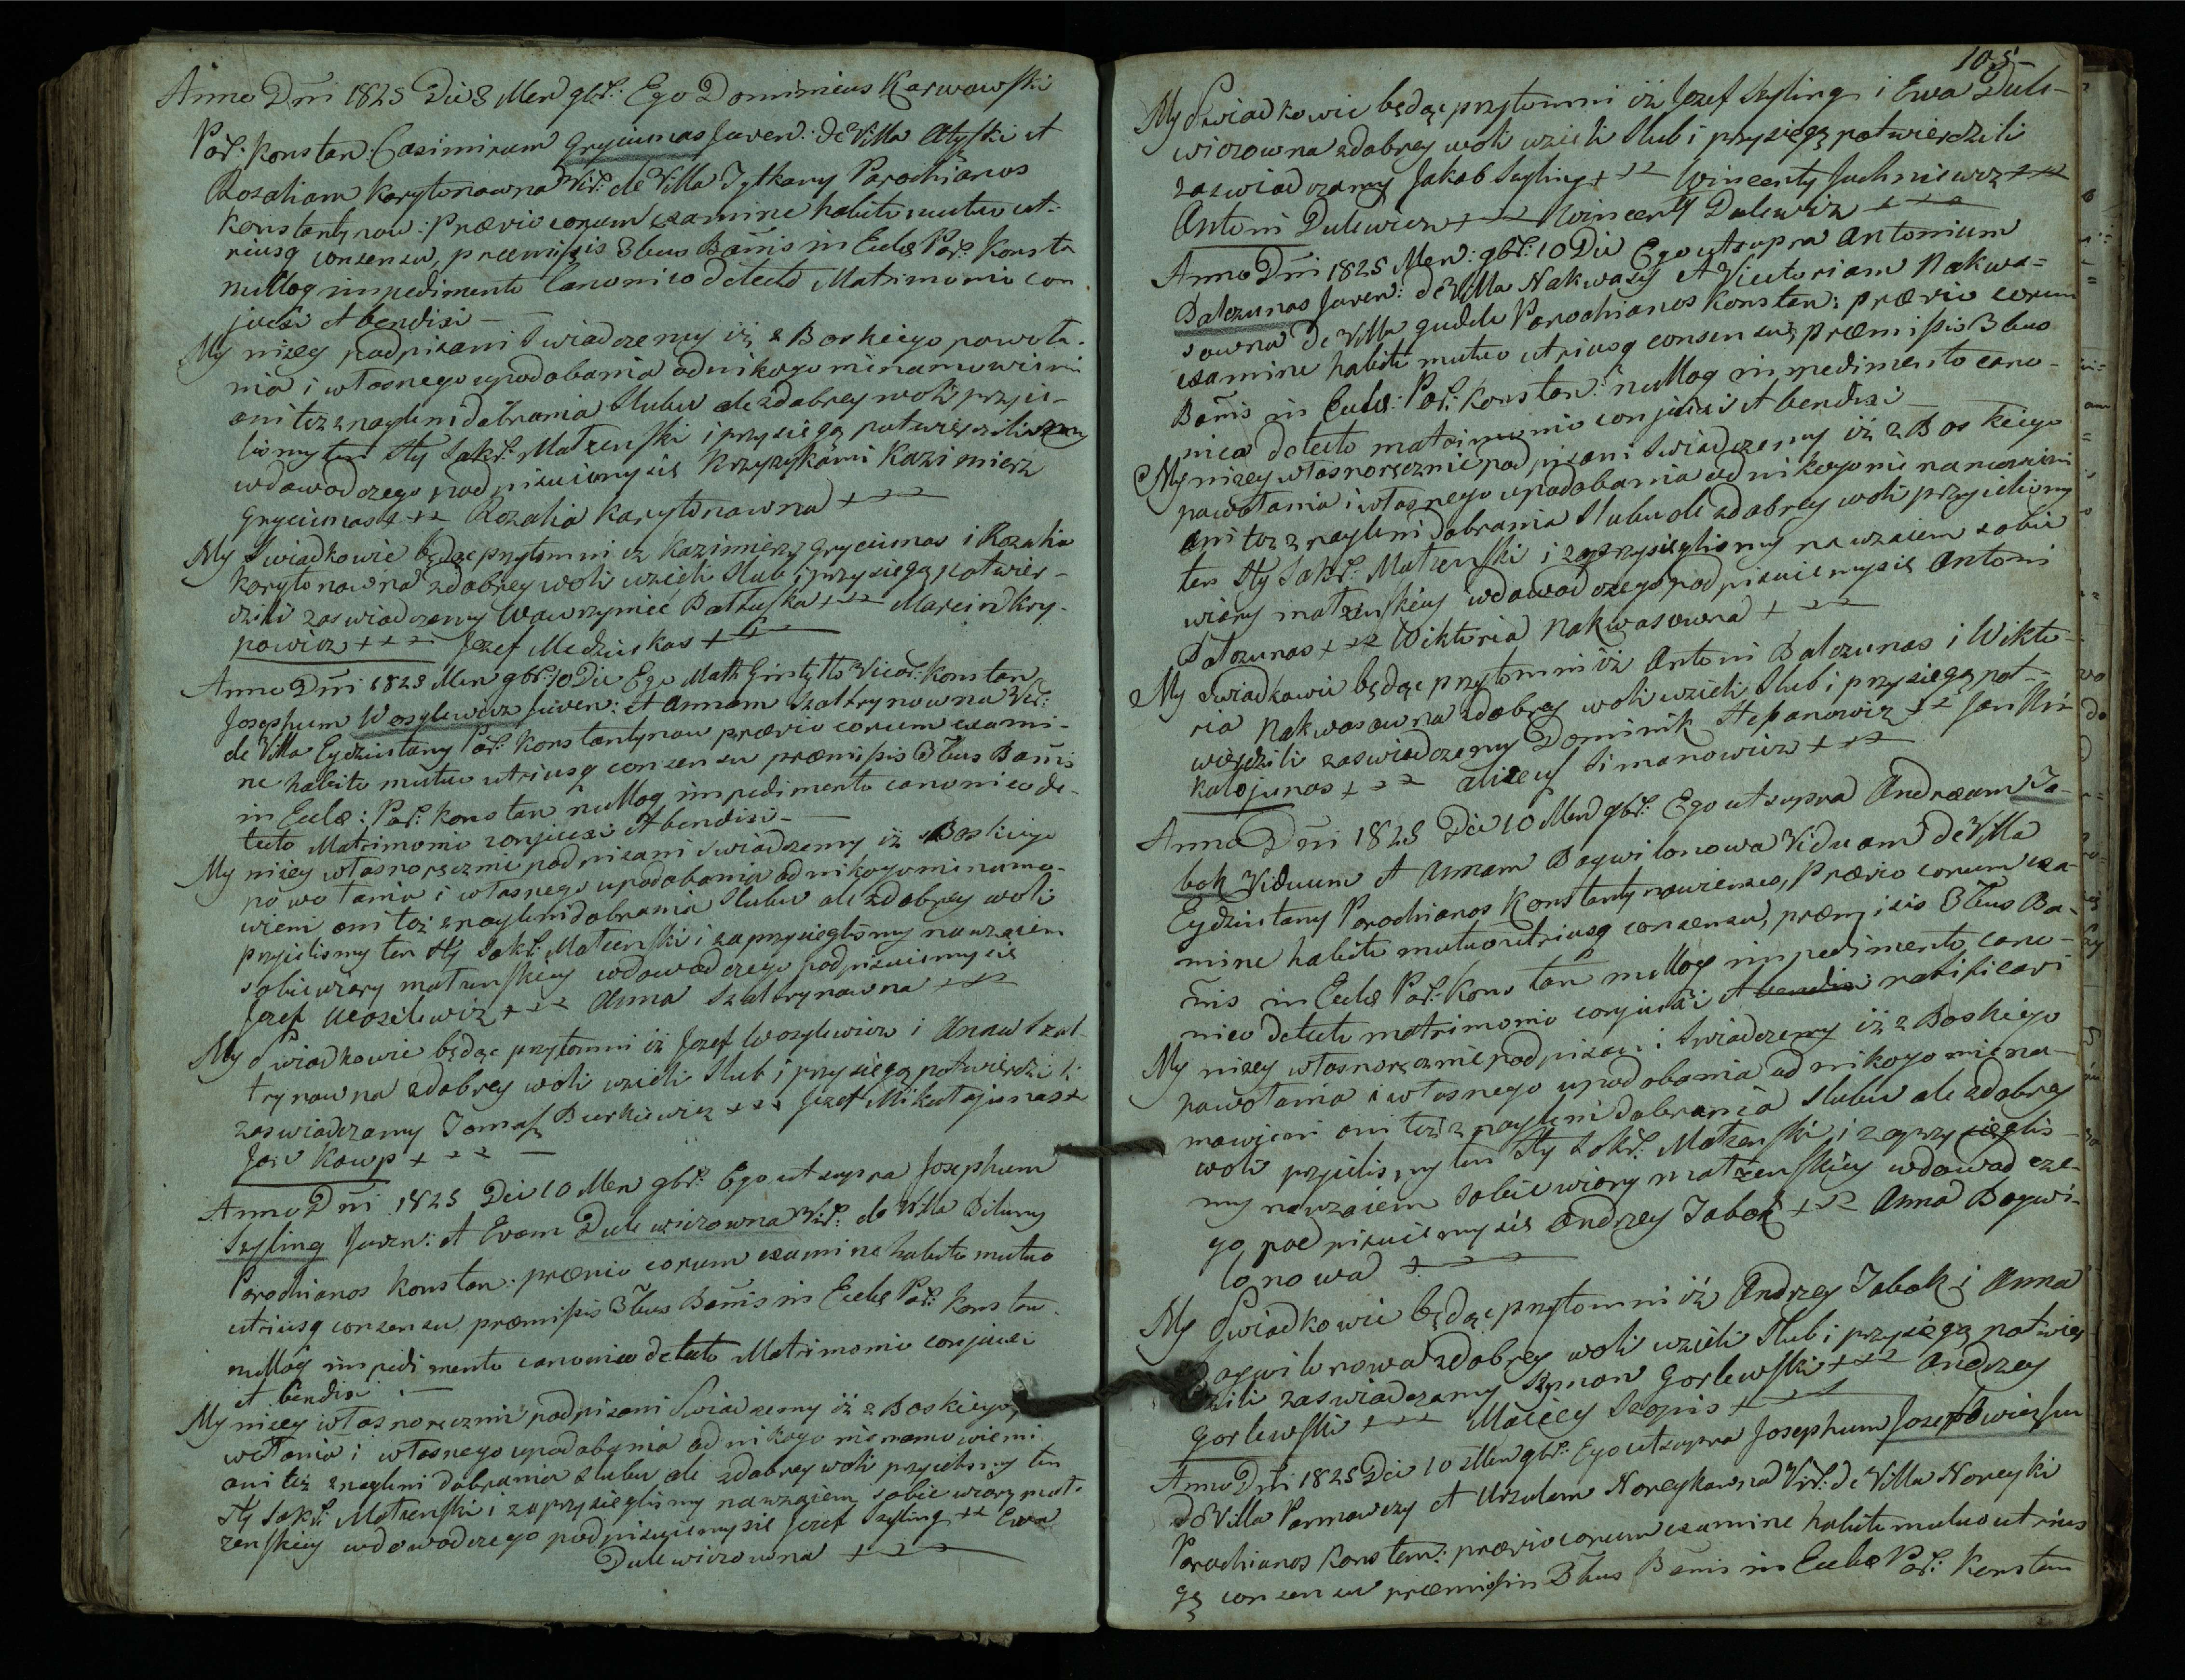 Anno Dñi 1825 Die 8 Men 9br: Ego Dominicus Karwowski
Par: Konstan: Casimirum Gryciunas Juven: de Villa Atyski et
Rozaliam Karytonowna Vir: de Villa Jytkany Parochianos
Konstantynow: Prævio eorum examine habito mutuo ut-
riusq consensu, præmissis 3bus Bañis in Eccla Par: Konsta
nulloq impedimento Canonico detecto Matrimonio con
juxi et benedixi —
My nizey podpisani Swiadczemy iż z Boskiego powoła-
nia i własnego upodobania od nikogo nienamowieni
ani tez znagleni dobrania Slubu ale z dobrey woli przyie-
lismy ten Sty Sakr: Małzenski i przysiegą potwierdzilismy
wdowod czego podpisuiemy się Krzyzykami Kazimierz
Gryciunas +++ Rozalia Karytonowna +++
My Swiadkowie będąc przytomni iz Kazimierz Gryciunas i Rozalia
Karytonowna z dobrey woli wzieli Slub i przysiegą potwier-
dzili zaswiadczamy Wawrzyniec Battuska +++ Marcin Kry-
powicz +++ Jozef Medziuskas +++
Anno Dñi 1825 Men 9br: 10 Die Ego Math Gintyłło Vicar: Konstan
Josephum Wasylewicz Juven: et Annam Szaltrynowna Vir:
de Villa Eydziutany Par: Konstantynow prævio eorum exami-
ne habito mutuo utriusq consensu præmissis 3bus Bañis
in Eccla: Par: Konstan nulloq impedimento canonico de-
tecto Matrimonio conjuxi et bendixi —
My nizey własnoręcznie podpisani Swiadczemy iż z Boskiego
powołania i własnego upodobania od nikogo nienamo-
wieni ani toz znagleni dobrania Slubu ale z dobrey woli
przyielismy ten Sty Sakr: Małzenski i zaprzysieglismy nawzaiem
sobie wiary małzenskiey wdowod czego podpisuiemy się
Jozef Wosilewicz +++ Anna Szaltrynowna +++
My Swiadkowie będąc przytomni iż Jozef Wosylewicz i Anna Szal-
trynowna z dobrey woli wzieli Slub i przysiegą potwierdzili
zaswiadczamy Tomasz Burkiewicz +++ Jozef Mikołajunas +
Jan Kowp +++ —
Anno Dñi 1825 Die 10 Men 9br: Ego ut supra Josephum
Szyling Juven: et Evam Dulewiczowna Vir: de Villa Biluny
Parochianos Konstan: prævio eorum examine habito mutuo
utriusq consensu præmissis 3bus Bañis in Eccla Par: Konstan.
nulloq impedimento canonico detecto Matrimonio conjuxi
et bendixi —
My nizey własnoręcznie podpisani Swiadczemy iż z Boskiego po
wołania i własnego upodobania od nikogo nienamowieni
ani tez znagleni dobrania Slubu ale z dobrey woli przyielismy ten
Sty Sakr: Małzenski i zaprzysieglismy nawzaiem sobie wiary mał-
zenskiey wdowod czego podpisuiemy się Jozef Szyling +++ Ewa
Dulewiczowna +++
105
My Swiadkowie będąc przytomni iż Jozef Szyling i Ewa Dule-
wiczowna z dobrey woli wzieli Slub i przysiegą potwierdzili
zaswiadczamy Jakob Szyling +++ Wincenty Juchniewicz +++
Antoni Dulewicz +++ Wincenty Dulewicz +++
Anno Dñi 1825 Men: 9br: 10 Die Ego ut supra Antonium
Balczunas Juven: de Villa Nakwasy et Victoriam Nakwa-
sowna de Villa Gudele Parochianos Konstan: prævio eorum
examine habito mutuo utriusq consensu, præmissis 3bus
Bañis in Eccla: Par: Konstan: nulloq impedimento cano-
nico detecto matrimonio conjuxi et bendixi —
My nizey własnoręcznie podpisani Swiadczemy iż z Boskiego
powołania i własnego upodobania od nikogo nie namowieni
ani toz znagleni dobrania Slubu ale z dobrey woli przyielismy
ten Sty Sakr: Małzenski i zaprzysieglismy nawzaiem sobie
wiary małzenskiey wdowod czego podpisuiemy się Antoni
Balczunas +++ Wiktoria Nakwasowna +++
My Swiadkowie będąc przytomni iż Antoni Balczunas i Wikto-
ria Nakwasowna z dobrey woli wzieli Slub i przysiegą pot-
wierdzili zaswiadczamy Dominik Stepanowicz +++ Jan Mi-
kołojunas +++ Alizeusz Simanowicz +++
Anno Dñi 1825 Die 10 Men 9br: Ego ut supra Andream Ja-
bok Viduum et Annam Bogwilonowa Viduam de Villa
Eydziutany Parochianos Konstantynowienses, Prævio eorum exa-
mine habito mutuo utriusq consensu, præmissis 3bus Ba-
ñis in Eccla Par: Konstan nulloq impedimento cano-
nico detecto matrimonio conjunxi et bendixi ratificavi
My nizey własnoręcznie podpisani Swiadczemy iż z Boskiego
powołania i własnego upodobania od nikogo niena-
mowieni ani tez znagleni dobrania Slubu ale z dobrey
woli przyielismy ten Sty Sakr: Małzenski i zaprzysieglis-
my nawzaiem sobie wiary małzenskiey wdowod cze-
go podpisuiemy się Andrzey Jabok +++ Anna Bogwi-
lonowa +++
My Swiadkowie będąc przytomni iż Andrzey Jabok i Anna
Bogwilonowa z dobrey woli wzieli Slub i przysiegą potwier
dzili zaswiadczamy Szymon Gorlewski +++ Andrzey
Gorlewski +++ Maciey Szopis +++
Anno Dñi 1825 Die 10 Men 9br: Ego ut supra Josephum Jozefowicz Juv
de Villa Parmowczy et Urszulam Noreykowna Vir: de Villa Noreyki
Parochianos Konstan: prævio eorum examine habito mutuo utrius
q consensu præmissis 3bus Banis in Eccla Par: Konstan